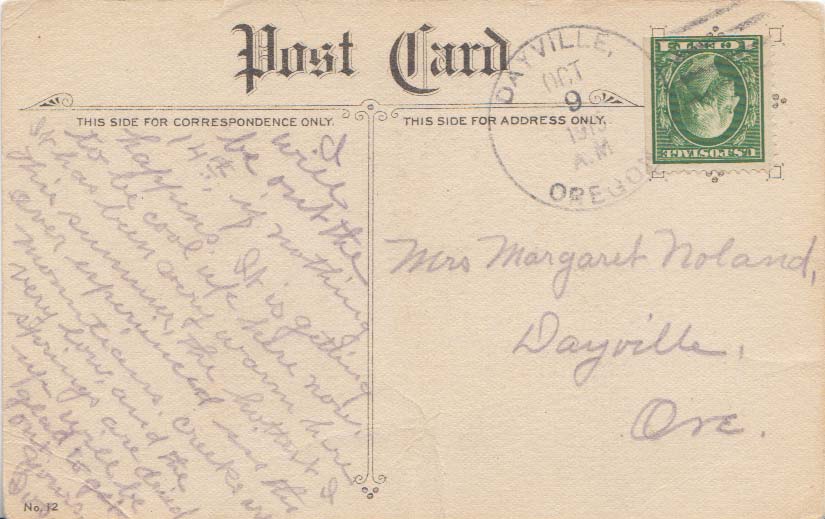 Post Card
THIS SIDE FOR CORRESPONDENCE ONLY.
THIS SIDE FOR ADDRESS ONLY.
DAYVILLE,
OCT
9
A.M
OREGON
U.S. POSTAGE
1 CENT 1
I
will
be out the
14th, if nothing
happens. It is getting
to be cool up here now.
It has been very warm here
this summer, the hottest I
ever experienced in the
mountains. creeks are
very low, and the
springs are dried
up. Will be
glad to get
out.
Yours
Mrs Margaret Noland,
Dayville,
Ore.
No. 12